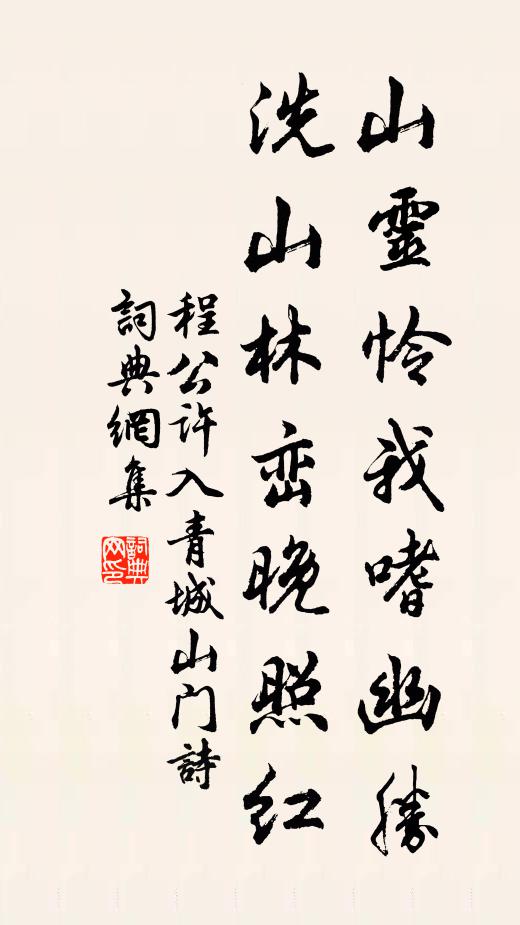 山靈怜我嗜幽勝
洗山林峦晚照红
程公许入青城山门詩
詞典網集
詞典網印